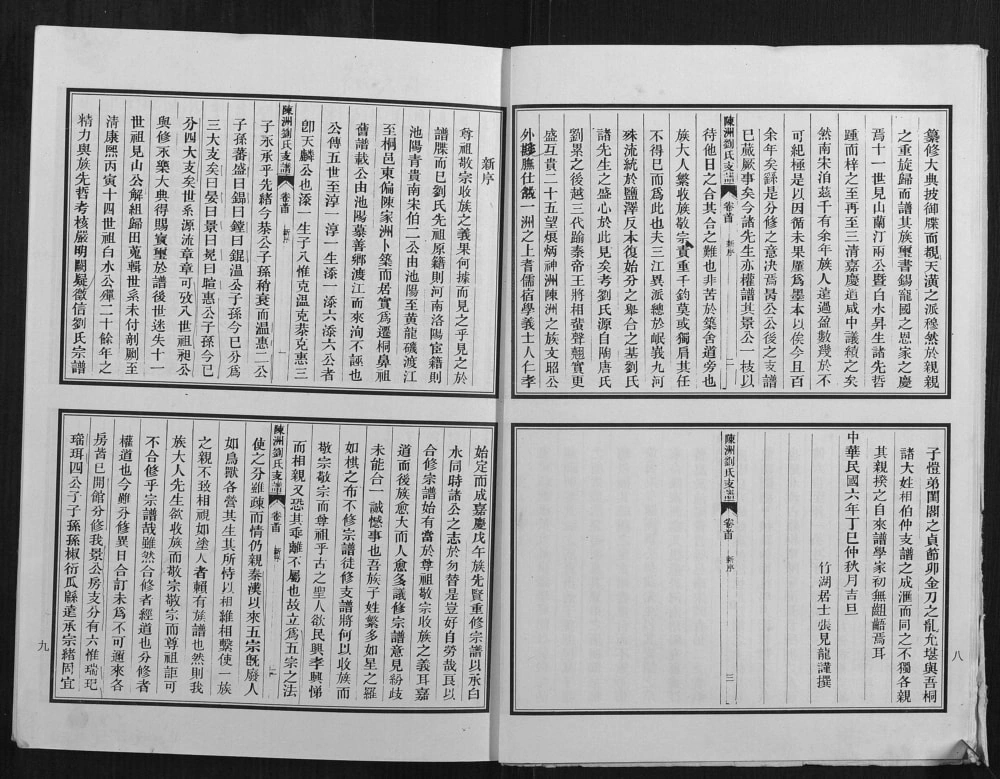 纂修大典披御牒而覩天潢之派穆然於親親
之重旋歸而譜其族璽書錫龍國之恩家之慶
焉十一世見山蘭汀兩公暨白水昇生諸先哲
踵而梓之至再至三清嘉慶道咸中議續之矣
然南宋洎茲千有余年族人達過盈數幾於不
可紀極是以因循未果厘爲墨本以俟今且百
余年矣繇是分修之意决焉景公公後之支譜
已蕆厥事矣今諸先生亦權譜其景公一枝以
陳洲劉氏支譜
卷首
新序
二
待他日之合其合之難也非苦於築舍道旁也
族大人繁收族敬宗責重千鈞莫或獨肩其任
不得已而爲此也夫三江異派總於岷峩九河
殊流統於鹽澤反本復始分之舉合之基劉氏
諸先生之盛心於此見矣考劉氏源自陶唐氏
劉累之後越三代踰秦帝王將相蜚聲翹實更
盛互貴二十五望煐炳神洲陳洲之族文昭公
外謄膴仕戩一洲之上耆儒宿學義士人仁孝
子愷弟閨閫之貞節卯金刀之亂允堪與吾桐
諸大姓相伯仲支譜之成滙而同之不獨各親
其親揆之自來譜學家初無齟齬焉耳
中華民國六年丁巳仲秋月吉旦
竹湖居士張見龍謹撰
陳洲劉氏支譜
卷首
新序
三
八
新序
尊祖敬宗收族之義果何據而見之乎見之於
譜牒而已劉氏先祖原籍則河南洛陽宦籍則
池陽青貴南宋伯二公由池陽至黃龍磯渡江
至桐邑東偏陳家洲卜築而居實爲遷桐鼻祖
舊譜載公由池陽慕善鄉渡江而來洵不誣也
公傳五世至淳一淳一生添一添六添六公者
卽天麟公也添一生子八惟克溫克恭克惠三
陳洲劉氏支譜
卷首
新序
一
子永承乎先緒今恭公子孫稍衰而温惠二公
子孫蕃盛曰錫曰鏜曰錕溫公子孫今已分爲
三大支矣曰晏曰景曰晃曰暄惠公子孫今已
分四大支矣世系源流章章可攷八世祖昶公
與修永樂大典得賜寳璽於譜後世迷失十一
世祖見山公解組歸田蒐輯世系未付剞劂至
清康熙丙寅十四世祖白水公殫二十餘年之
精力與族先哲考核嚴明闕疑徵信劉氏宗譜
始定而成嘉慶戊午族先賢重修宗譜以承白
水同時諸公之志於勿替是豈好自勞哉良以
合修宗譜始有當於尊祖敬宗收族之義耳嘉
道而後族愈大而人愈多議修宗譜意見紛歧
未能合一誠憾事也吾族子姓繁多如星之羅
如棋之布不修宗譜徒修支譜將何以收族而
敬宗敬宗而尊祖乎古之聖人欲民興孝興悌
而相親又恐其乖離不屬也故立爲五宗之法
陳洲劉氏支譜
卷首
新序
使之分雖疎而情仍親秦漢以來五宗旣廢人
如鳥獸各營其生其所恃以相維相繫使一族
之親不致相視如塗人者賴有族譜也然則我
族大人先生欲收族而敬宗敬宗而尊祖詎可
不合修乎宗譜哉雖然合修者經道也分修者
權道也今雖分修異日合訂未爲不可邇來各
房皆已開館分修我景公房支分有六惟瑞玘
瑙珥四公子子孫孫椒衍瓜緜遠承宗緒問宜
九